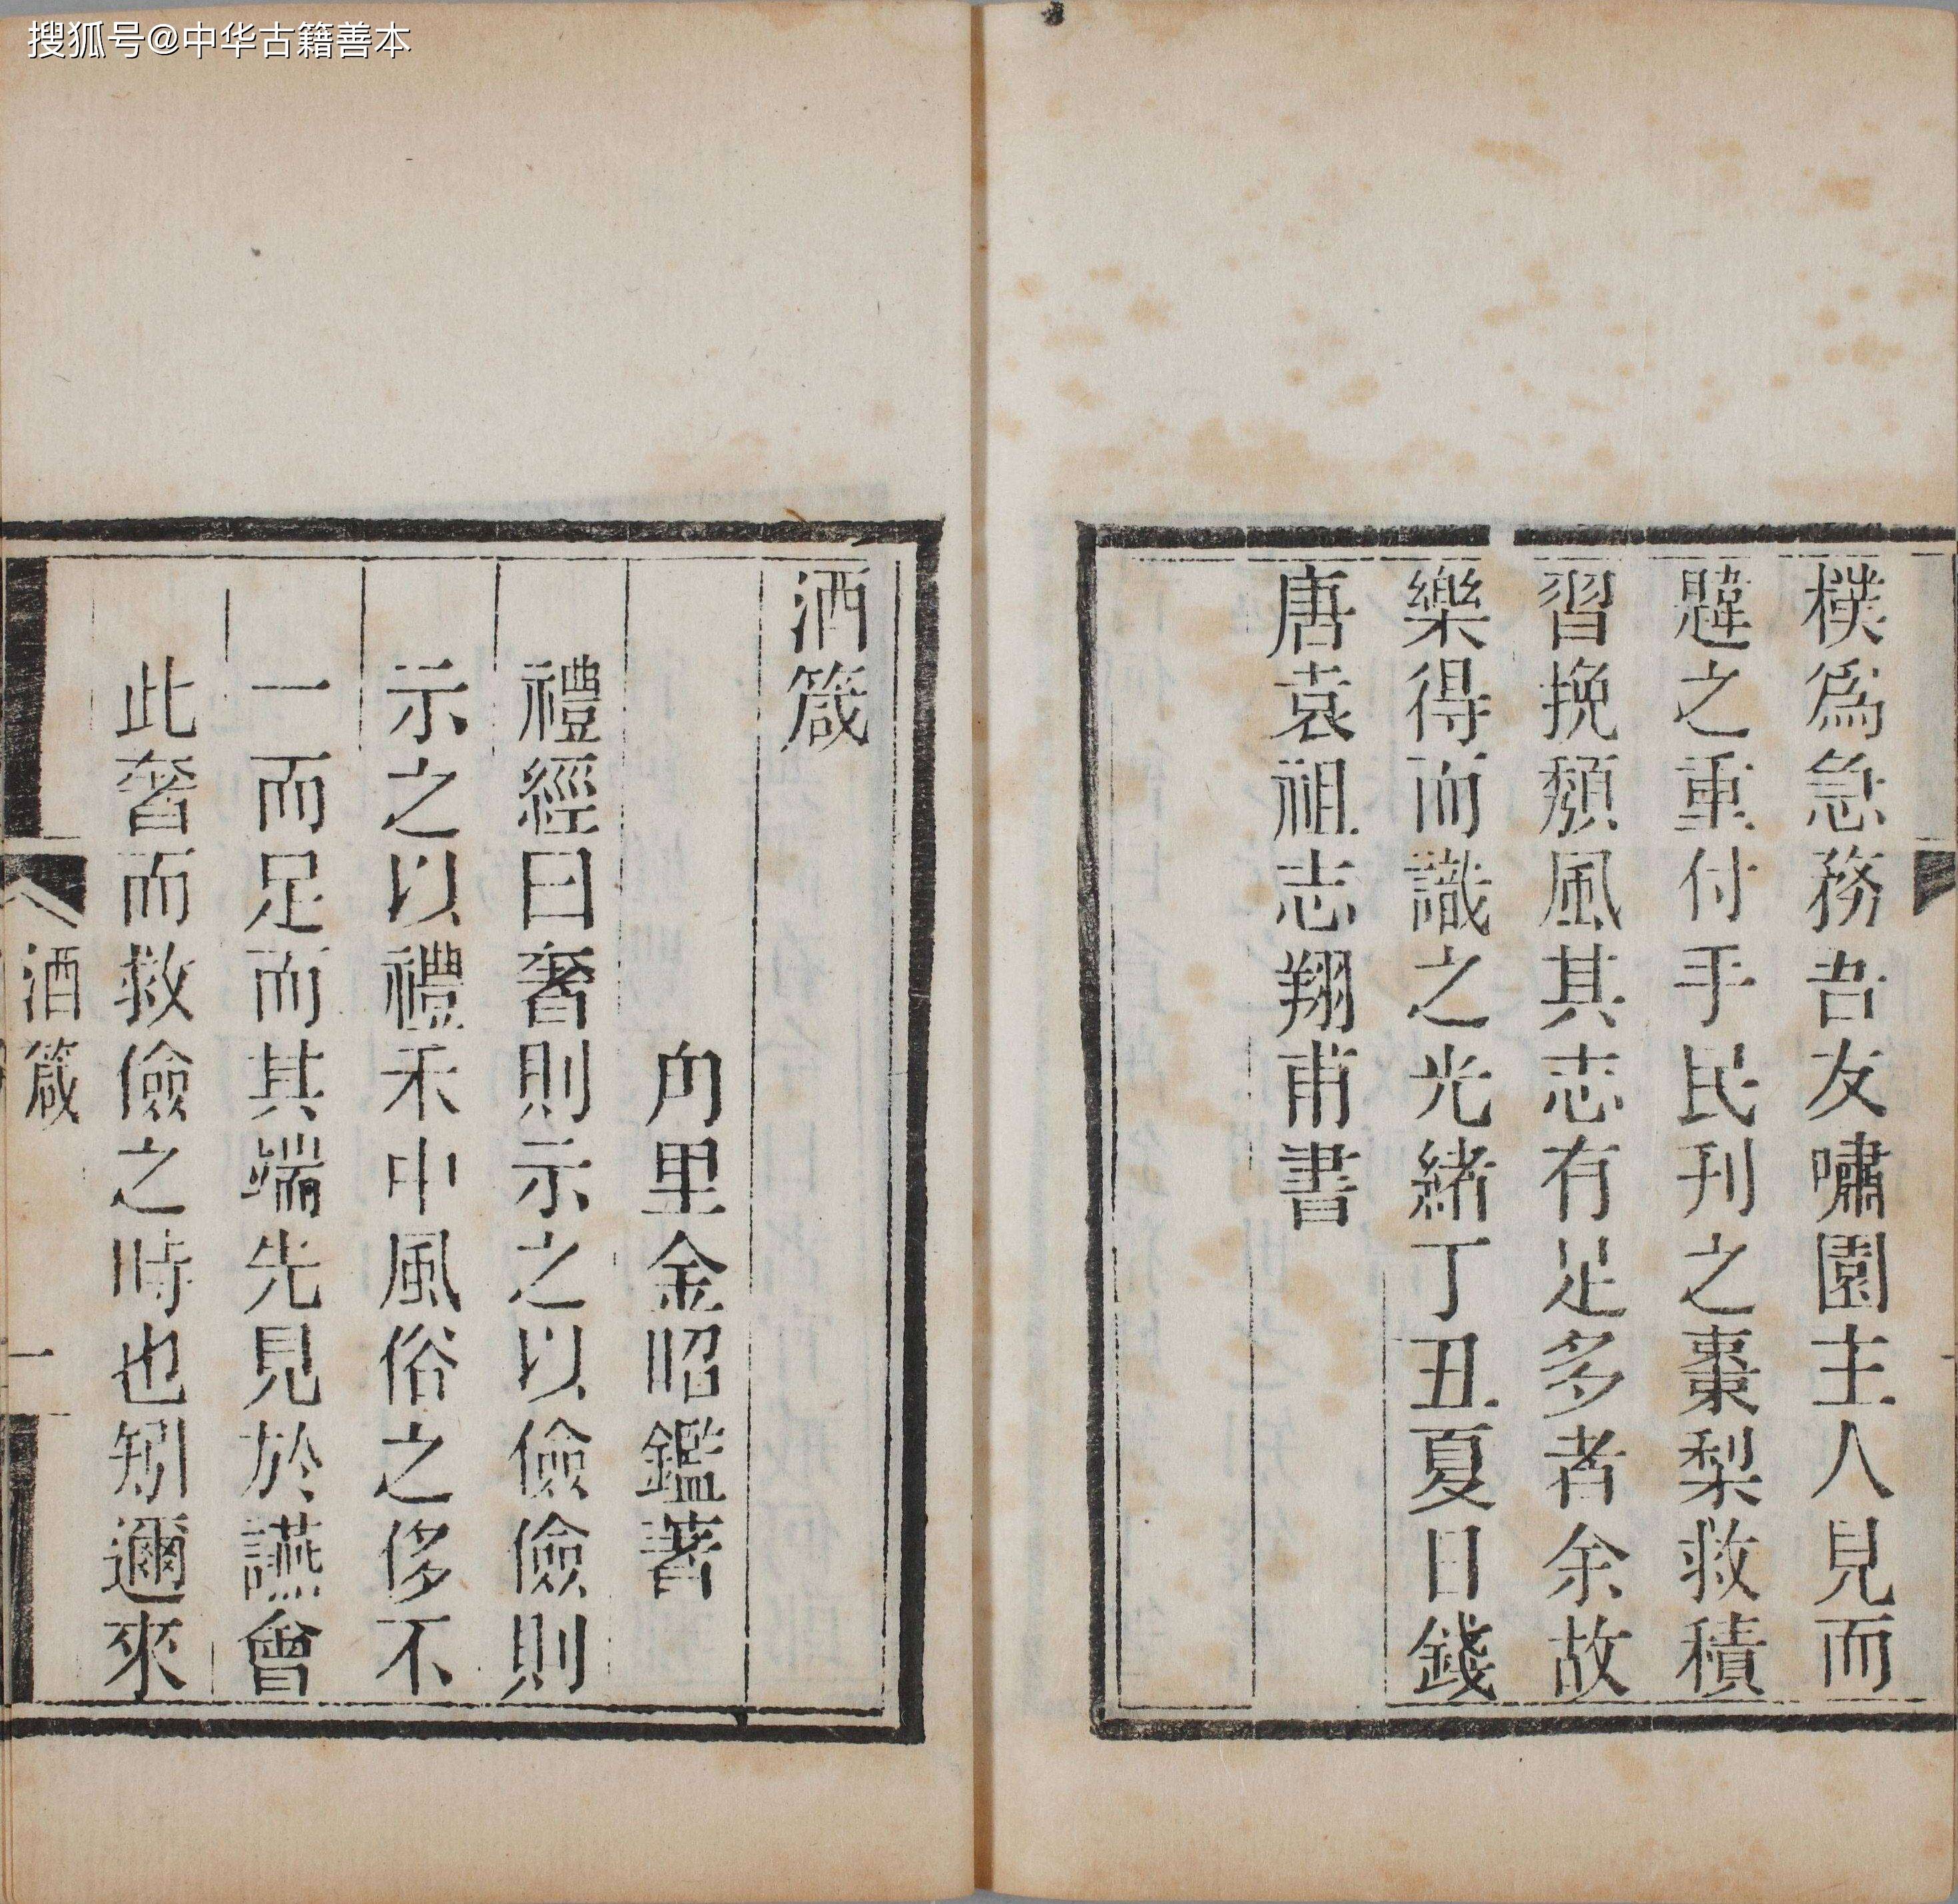 搜狐号@中华古籍善本
樸爲急務吾友嘯園主人見而
韙之重付手民刋之棗梨救積
習挽頽風其志有足多者余故
樂得而識之光緒丁丑夏日錢
唐袁祖志翔甫書
酒箴
甪里金昭鑑著
禮經曰奢則示之以儉儉則
示之以禮禾中風俗之侈不
一而足而其端先見於讌會
此奢而救儉之時也矧邇來
酒箴
一